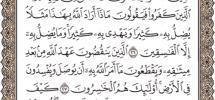 ٱلَّذِينَ كَفَرُوا۟ فَيَقُولُونَ مَاذَآ أَرَادَ ٱللَّهُ بِهَٰذَا مَثَلًا
يُضِلُّ بِهِۦ كَثِيرًا وَيَهْدِى بِهِۦ كَثِيرًا وَمَا يُضِلُّ بِهِۦٓ
إِلَّا ٱلْفَٰسِقِينَ ٱلَّذِينَ يَنقُضُونَ عَهْدَ ٱللَّهِ مِنۢ بَعْدِ
مِيثَٰقِهِۦ وَيَقْطَعُونَ مَآ أَمَرَ ٱللَّهُ بِهِۦٓ أَن يُوصَلَ وَيُفْسِدُونَ
فِى ٱلْأَرْضِ أُو۟لَٰٓئِكَ هُمُ ٱلْخَٰسِرُونَ كَيْفَ